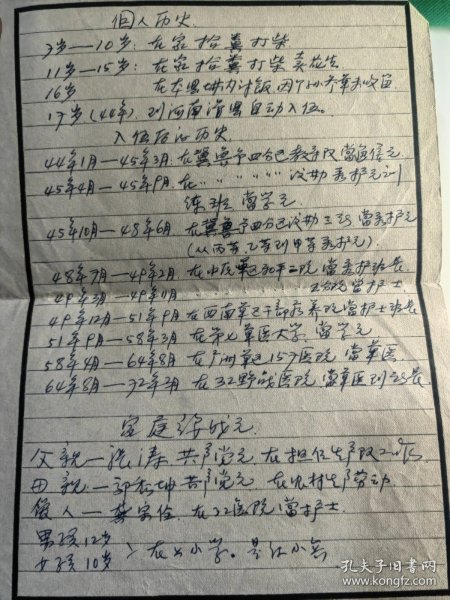 个人历史
7岁——10岁：在家拾粪打柴
11岁—15岁：在家拾粪打柴卖花生
16岁 在本县境内讨饭，因个小参军未收留
17岁（44年）到河南滑县自动入伍。
入伍后的历史
44年1月—45年3月 在冀鲁豫四分区教导队当通信员
45年4月—45年9月 在〃〃〃〃〃〃 疗所看护员训
练班当学员
45年10月—48年6月 在冀鲁豫四分区疗所三所当看护员
（从丙等、乙等到甲等看护员）
48年7月—49年2月 在中原军区和平二院当看护班长
49年3月—49年11月 分院当护士
49年12月—51年9月 在西南军区干部疗养院当护士班长
51年9月—58年3月 在第七军医大学当学员
58年4月—64年8月 在广州军区157医院当军医
64年8月—72年2月 在32野战医院当军医到所长
家庭
父亲—张涛 共产党员 在担任生产队
母亲— 共产党员 在农村生产劳动
爱人— 在32医院当护士
男孩12岁
女孩10岁 > 在上小学。是红小兵
孔夫子旧书网
book.kongfz.com